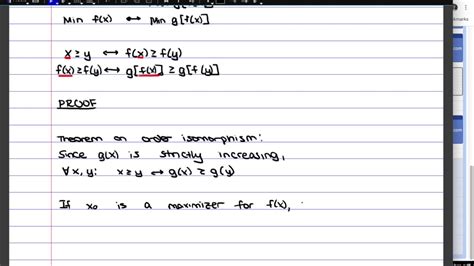 Min f(x) ↔ Min g[f(x)]
x ≥ y ↔ f(x) ≥ f(y)
f(x) ≥ f(y) ↔ g[f(x)] ≥ g[f(y)]
PROOF
Theorem on order isomorphism:
Since g(x) is strictly increasing,
∀x, y: x ≥ y ↔ g(x) ≥ g(y)
If x₀ is a maximizer for f(x),